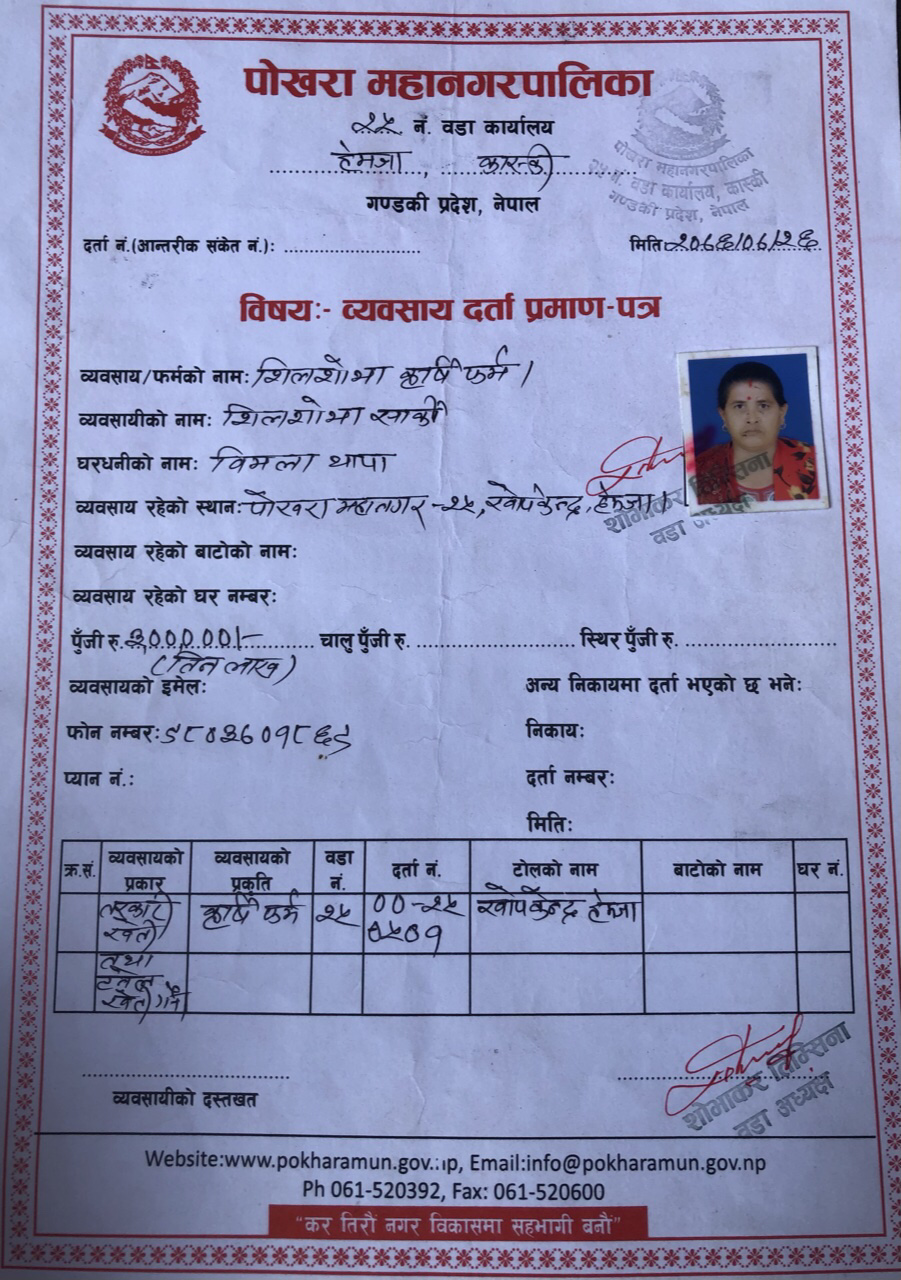 पोखरा महानगरपालिका
२५ नं. वडा कार्यालय
हेमजा, कास्की
गण्डकी प्रदेश, नेपाल
पोखरा महानगरपालिका
२५ नं. वडा कार्यालय, कास्की
गण्डकी प्रदेश, नेपाल
दर्ता नं.(आन्तरीक संकेत नं.): ..............................
मिति २०७६/०६/२६
विषयः- व्यवसाय दर्ता प्रमाण-पत्र
व्यवसाय/फर्मको नाम: शिलशोभा कृषि फर्म।
व्यवसायीको नाम: शिलशोभा सार्की
घरधनीको नाम: विमला थापा
व्यवसाय रहेको स्थान: पोखरा महानगर -२५, खोपकेन्द्र, हेम्जा।
शोभाकर तिम्सिना
वडा अध्यक्ष
व्यवसाय रहेको बाटोको नाम:
व्यवसाय रहेको घर नम्बर:
पुँजी रु. ३००,०००।- चालु पुँजी रु. .............................. स्थिर पुँजी रु. ..............................
(तिन लाख)
व्यवसायको इमेल: अन्य निकायमा दर्ता भएको छ भने:
फोन नम्बर: ९८०३६०१८६९ निकाय:
प्यान नं.: दर्ता नम्बर:
मिति:
क्र.सं. व्यवसायको प्रकार व्यवसायको प्रकृति वडा नं. दर्ता नं. टोलको नाम बाटोको नाम घर नं.
तरकारी खेती कृषि फर्म २५ ००-२५ खोपकेन्द्र हेम्जा
तथा
टनेल
खेती गर्ने
व्यवसायीको दस्तखत
शोभाकर तिम्सिना
वडा अध्यक्ष
Website:www.pokharamun.gov.np, Email:info@pokharamun.gov.np
Ph 061-520392, Fax: 061-520600
"कर तिरौं नगर विकासमा सहभागी बनौं"